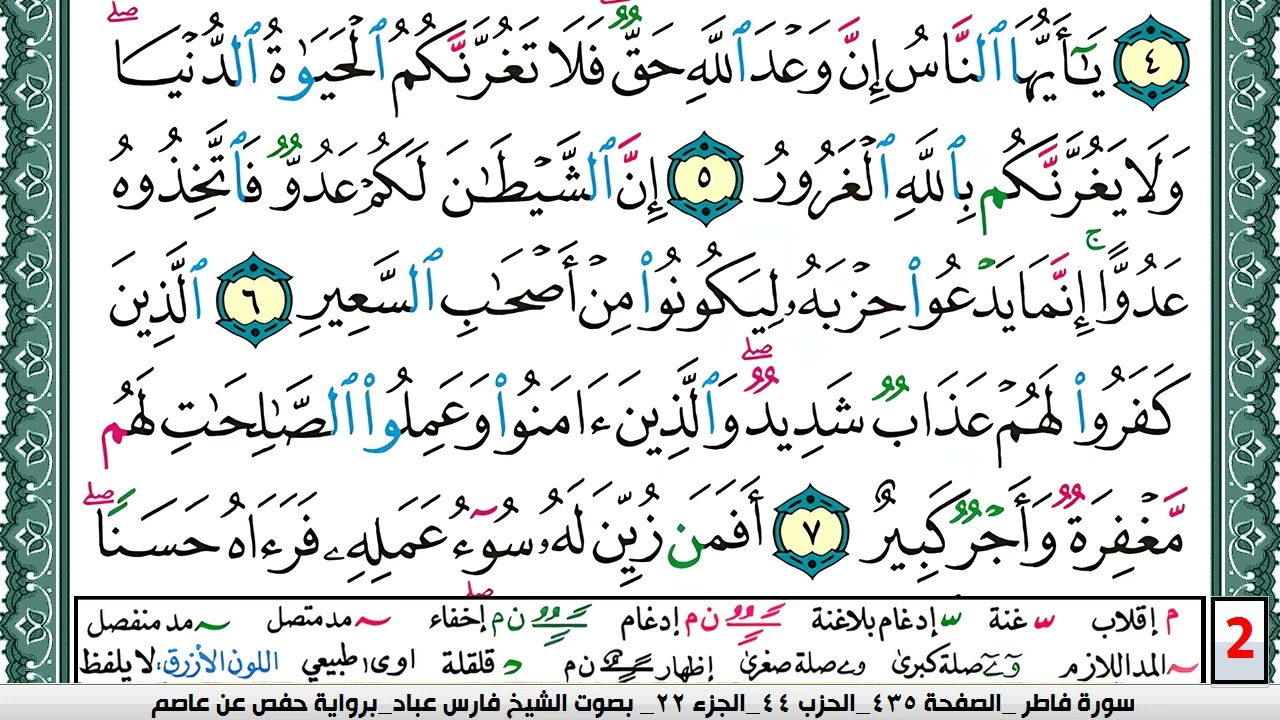 ٤ يَـٰٓأَيُّهَا ٱلنَّاسُ إِنَّ وَعْدَ ٱللَّهِ حَقٌّ فَلَا تَغُرَّنَّكُمُ ٱلْحَيَوٰةُ ٱلدُّنْيَا ۖ
وَلَا يَغُرَّنَّكُم بِٱللَّهِ ٱلْغَرُورُ ٥ إِنَّ ٱلشَّيْطَـٰنَ لَكُمْ عَدُوٌّ فَٱتَّخِذُوهُ
عَدُوًّا ۚ إِنَّمَا يَدْعُوا۟ حِزْبَهُۥ لِيَكُونُوا۟ مِنْ أَصْحَـٰبِ ٱلسَّعِيرِ ٦ ٱلَّذِينَ
كَفَرُوا۟ لَهُمْ عَذَابٌ شَدِيدٌ ۖ وَٱلَّذِينَ ءَامَنُوا۟ وَعَمِلُوا۟ ٱلصَّـٰلِحَـٰتِ لَهُم
مَّغْفِرَةٌ وَأَجْرٌ كَبِيرٌ ٧ أَفَمَن زُيِّنَ لَهُۥ سُوٓءُ عَمَلِهِۦ فَرَءَاهُ حَسَنًا ۖ
م إقلاب س غنة س إدغام بلاغنة ن م إدغام ن م إخفاء مد متصل مد منفصل
المد اللازم و ے صلة كبرى و ے صلة صغرى إظهار ن م د قلقلة ا و ى طبيعي اللون الأزرق: لا يلفظ
2
سورة فاطر _الصفحة ٤٣٥_الحزب ٤٤_الجزء ٢٢_ بصوت الشيخ فارس عباد_برواية حفص عن عاصم